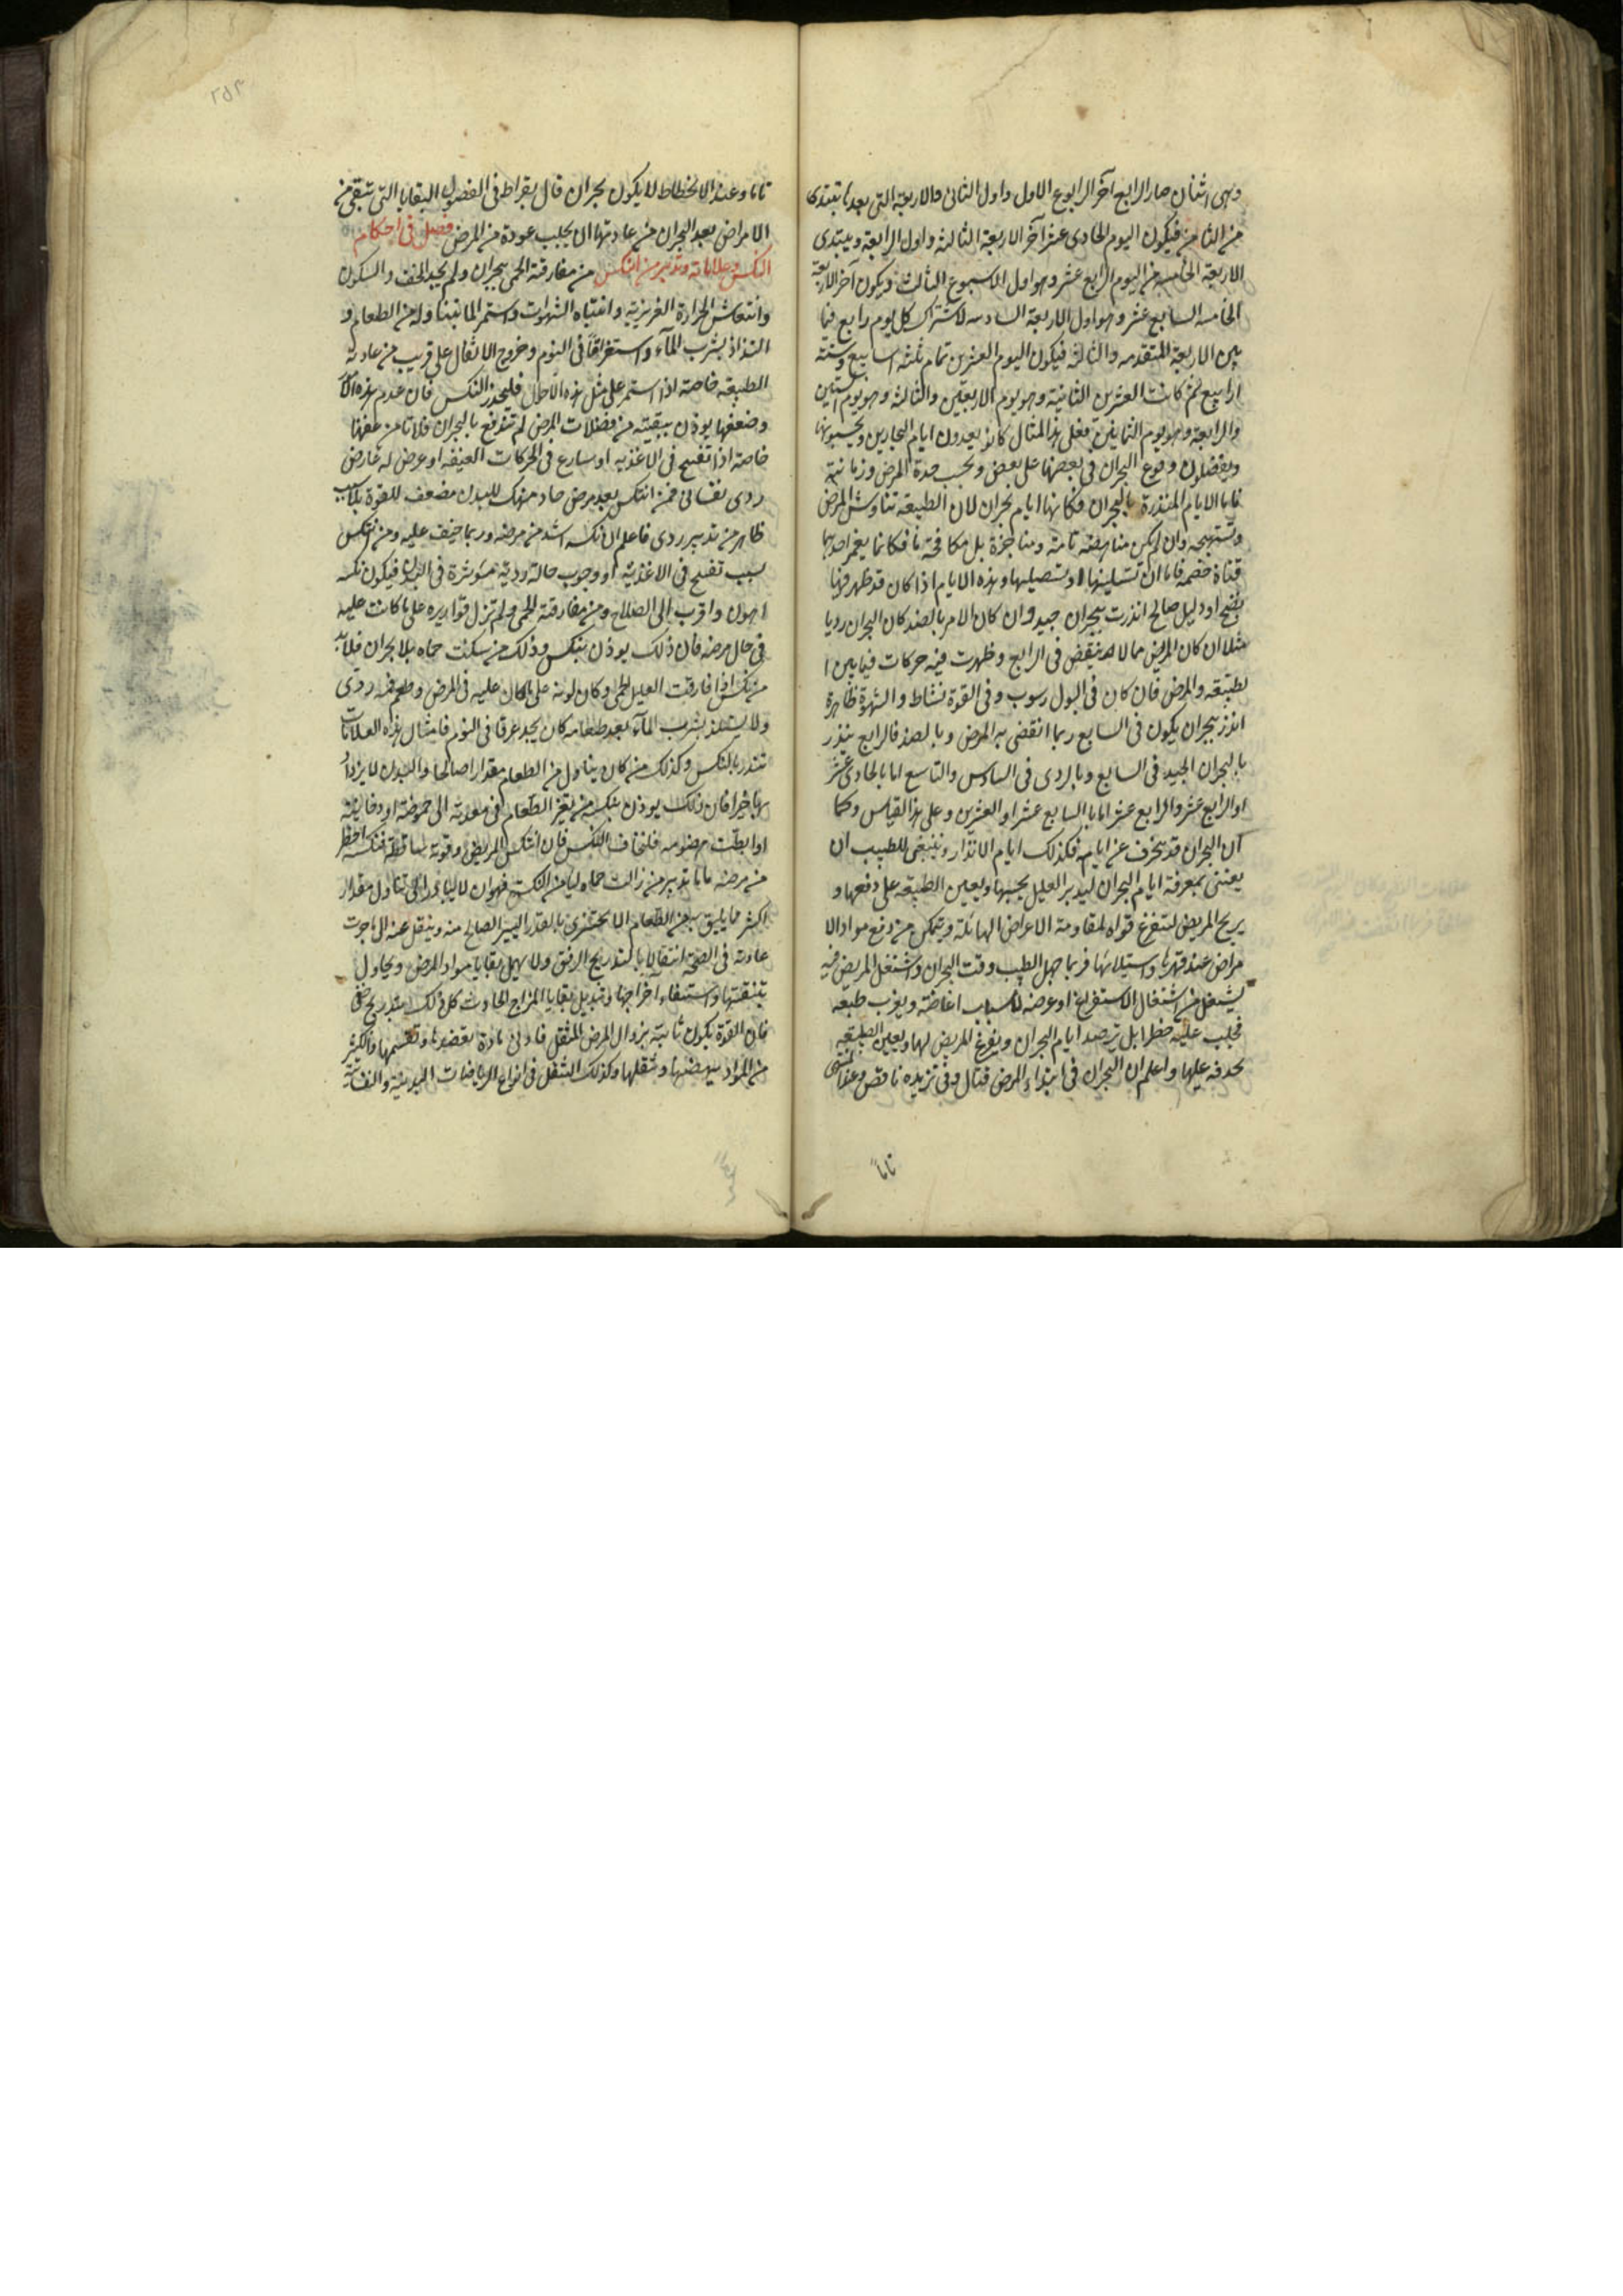 وهى اثنان صار الرابع آخر الرابوع الاول واول الثانى والاربعة التى بعدها تبتدى
من الثامن فيكون اليوم الحادى عشر آخر الاربعة الثالثة واول الرابعة ويبتدى
الاربعة الخامسة من اليوم الرابع عشر وهو اول الاسبوع الثالث ويكون آخر الاربعة
الخامسة السابع عشر وهو اول الاربعة السادسة لاشتراك كل يوم رابع فيما
بين الاربعة المتقدمه والثالثة فيكون اليوم العشرين تمام ثلثة اسابيع وستة
ارابيع ثم كانت العشرين الثانية وهو يوم الاربعين والثالثة وهو يوم الستين
والرابعة وهو يوم الثمانين فعلى هذا المثال كانوا يعدون ايام البحارين ويحسبونها
ويفضلون وقوع البحران فى بعضها على بعض وبحسب حدة المرض وزمانته
فاما الايام المنذرة بالبحران فكانها ايام بحران لان الطبيعة تناوش المرض
وتستهيجه وان لم يكن مناهضة تامة ومناجزة بل مكافحة ما فكانما يغمز احدهما
قناة خصمه فاما ان تستلينها او تستصلبها وهذه الايام اذا كان قد ظهر فيها
نضج او دليل صالح انذرت ببحران جيد وان كان الامر بالضد كان البحران رديا
مثلا ان كان المرض مما لا ينقضى فى الرابع وظهرت فيه حركات فيما بين ا
لطبيعة والمرض فان كان فى البول رسوب وفى القوة نشاط والشهوة ظاهرة
انذر ببحران يكون فى السابع ربما انقضى به المرض وبالضد فالرابع ينذر
بالبحران الجيد فى السابع وبالردى فى السادس والتاسع اما بالحادى عشر
او الرابع عشر والرابع عشر اما بالسابع عشر او العشرين وعلى هذا القياس وكما
ان البحران قد ينحرف عن ايامه فكذلك ايام الانذار وينبغى للطبيب ان
يعتنى بمعرفة ايام البحران ليدبر العليل بحسبها ويعين الطبيعة على دفعها و
يريح المريض لتتفرغ قواه لمقاومة الاعراض الهائلة ويتمكن من دفع مواد الا
مراض عند قهرها واستيلائها فربما جهل الطبيب وقت البحران واشتغل المريض فيه
بشغل من اشتغال الاستفراغ او عرضه لاسباب
فجلب عليه خطرا بل يرصد ايام البحران ويفرغ المريض لها ويعين الطبيعة
بحدقه عليها واعلم ان البحران فى ابتداء المرض قتال وفى تزيده ناقص وعند المنتهى
تاما
تاما وعند الانحطاط لا يكون بحران قال بقراط فى الفصول البقايا التى تبقى من
الامراض بعد البحران من عادتها ان يجلب عودة من المرض فصل فى احكام
النكس وعلاماته وتدبير من انتكس من مفارقة الحمى ببحران ولم يجد الخف والسكون
وانتعاش الحرارة الغريزية وانتباه الشهوات واستمر لما يتناوله من الطعام و
التذاذ بشرب المآء واستغراقا فى النوم وخروج الاثفال على قريب من عادته
الطبيعة خاصة اذا استمر على مثل هذه الاحوال فليحذر النكس فان عدم هذه
وضعفها يوذن ببقية من فضلات المرض لم تندفع بالبحران فلا تامن
خاصة اذا تفسح فى الاغذيه او سارع فى الحركات العنيفه او عرض له عارض
ردى نفسانى فمن انتكس بعد مرض حاد منهك للبدن مضعف للقوة بلا سبب
ظاهر من تدبير ردى فاعلم ان نكسه اشد من مرضه وربما خيف عليه ومن انتكس
بسبب تفسح فى الاغذية او وجوب حالة ردية موثرة فى البدن فيكون نكسه
اهون واقرب الى الصلاح ومن مفارقة الحمى ولم تزل قواريره على ما كانت عليه
فى حال مرضه فان ذلك يوذن بنكس وذلك من سكنت حماه بلا بحران فلا بد
من نكس اذا فارقت العليل الحمى وكان لونه على ما كان عليه فى المرض وطعم فمه ردى
ولا يستلذ بشرب المآء بعد طعامه كان يجد عرقا فى النوم فامثال هذه العلامات
تنذر بالنكس وكذلك من كان يتناول من الطعام مقدارا صالحا والبدن لا يزداد
بها خيرا فان ذلك يوذن بنكسه من تغير الطعام فى معدته الى حموضة او دخانية
او ابطات هضومه فلتخاف النكس فان انتكس المريض وقوته ساقطة فنكسه اخطر
من مرضه ما يا تدبير من زالت حماه ليامن النكس فهو ان لا يبادر الى تناول مقدار
اكثر مما يليق به من الطعام الا يجتزى بالقدر اليسير الصالح منه وينتقل عنه الى ما جرت
عادته فى الصحة انتقالا بالتدريج الارفق ولا يهمل بقايا مواد المرض ويحاول
بتنقيتها واستقصاء اخراجها وتبديل بقايا المزاج الحادث كل ذلك بتدريج
فان القوة يكون ثابتة بزوال المرض المثقل فادنى مادة تعضدها وتقسمها والكثير
من المواد يبهضها ويثقلها وكذلك التنقل فى انواع الرياضات البدنية والنفسانية